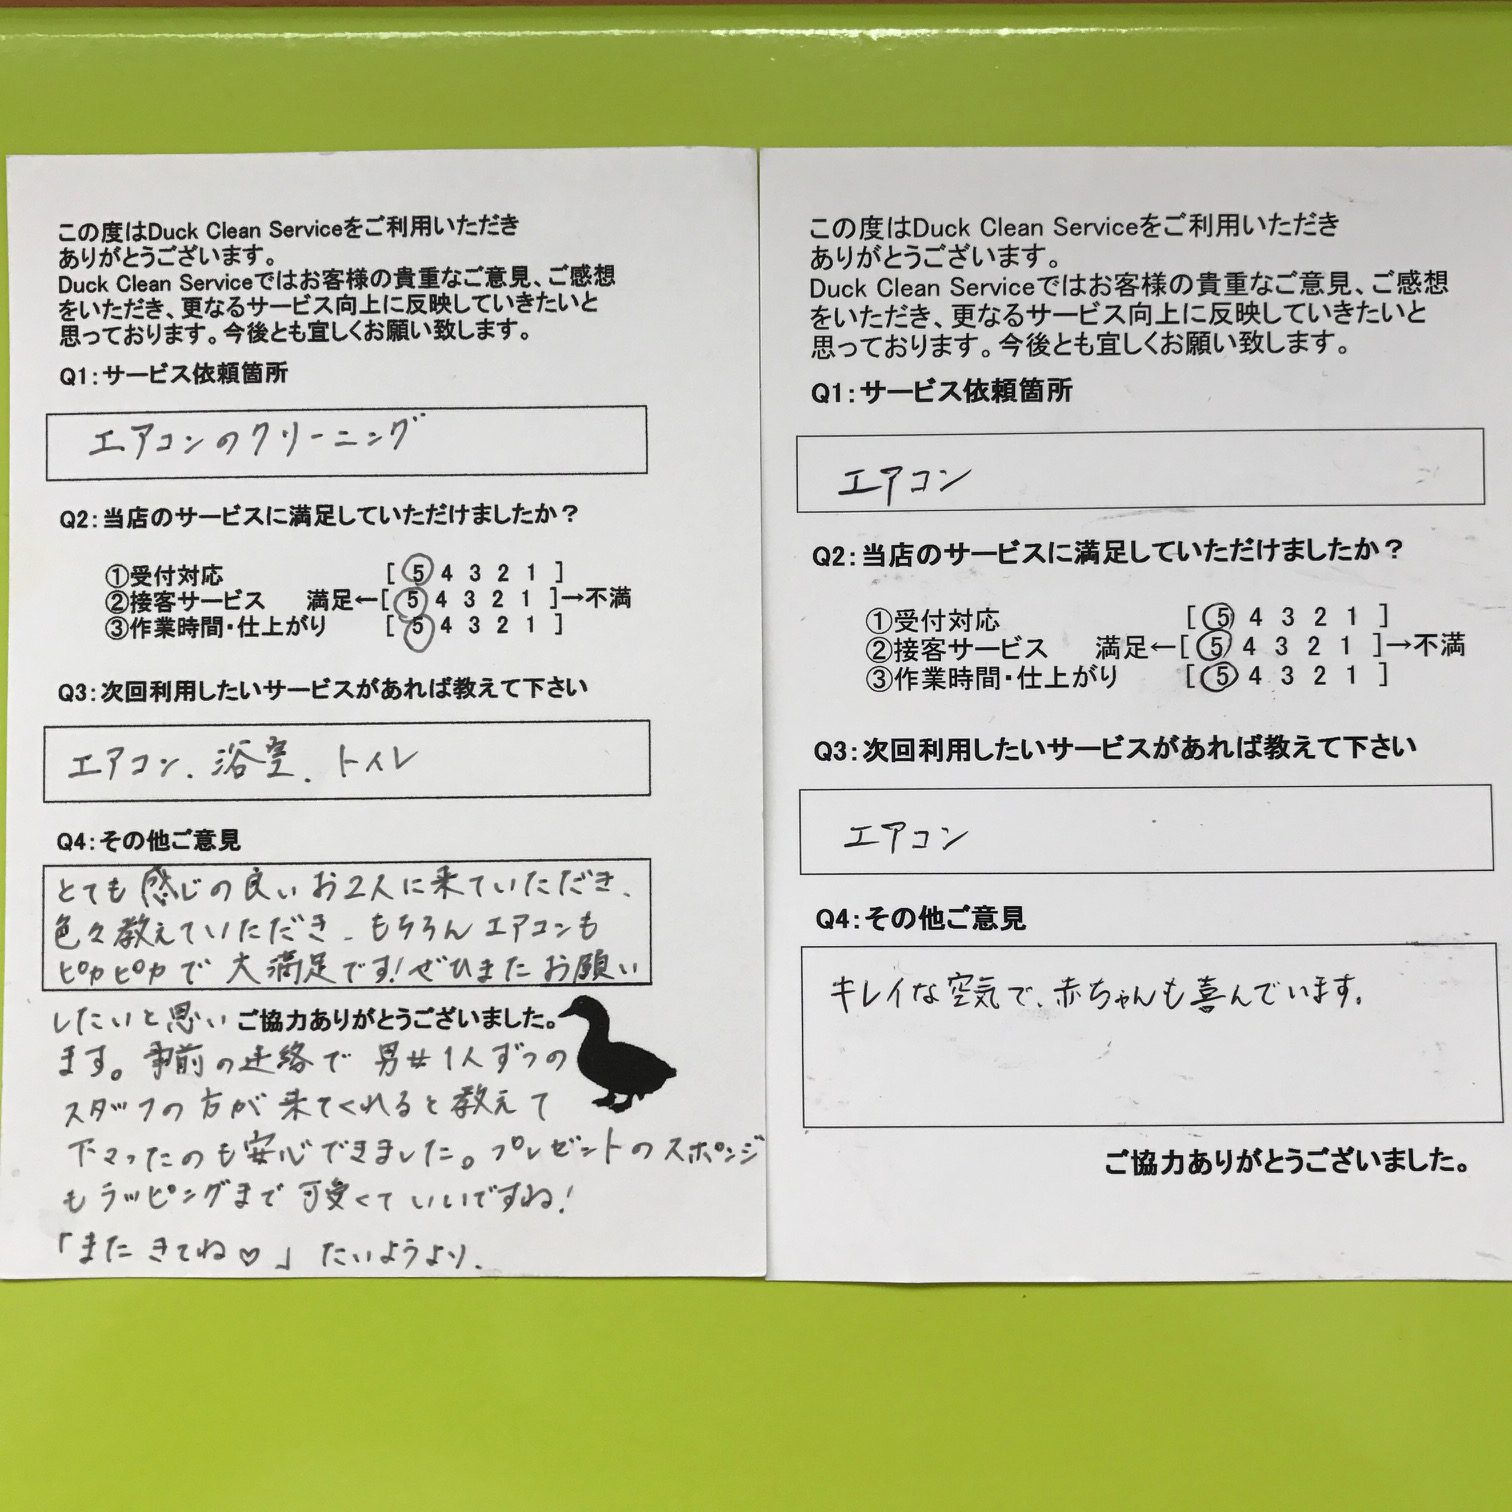 この度はDuck Clean Serviceをご利用いただき
ありがとうございます。
Duck Clean Serviceではお客様の貴重なご意見、ご感想
をいただき、更なるサービス向上に反映していきたいと
思っております。今後とも宜しくお願い致します。
Q1：サービス依頼箇所
エアコンのクリーニング
Q2：当店のサービスに満足していただけましたか？
①受付対応 [ 5 4 3 2 1 ]
②接客サービス 満足←[ 5 4 3 2 1 ]→不満
③作業時間・仕上がり [ 5 4 3 2 1 ]
Q3：次回利用したいサービスがあれば教えて下さい
エアコン、浴室、トイレ
Q4：その他ご意見
とても感じの良いお2人に来ていただき、
色々教えていただき、もちろんエアコンも
ピカピカで大満足です!ぜひまたお願い
したいと思い
ご協力ありがとうございました。
ます。事前の連絡で男女1人ずつの
スタッフの方が来てくれると教えて
下さったのも安心できました。プレゼントのスポンジ
もラッピングまで可愛くていいですね!
「またきてね♡」たいようより、
この度はDuck Clean Serviceをご利用いただき
ありがとうございます。
Duck Clean Serviceではお客様の貴重なご意見、ご感想
をいただき、更なるサービス向上に反映していきたいと
思っております。今後とも宜しくお願い致します。
Q1：サービス依頼箇所
エアコン
Q2：当店のサービスに満足していただけましたか？
①受付対応 [ 5 4 3 2 1 ]
②接客サービス 満足←[ 5 4 3 2 1 ]→不満
③作業時間・仕上がり [ 5 4 3 2 1 ]
Q3：次回利用したいサービスがあれば教えて下さい
エアコン
Q4：その他ご意見
キレイな空気で、赤ちゃんも喜んでいます。
ご協力ありがとうございました。